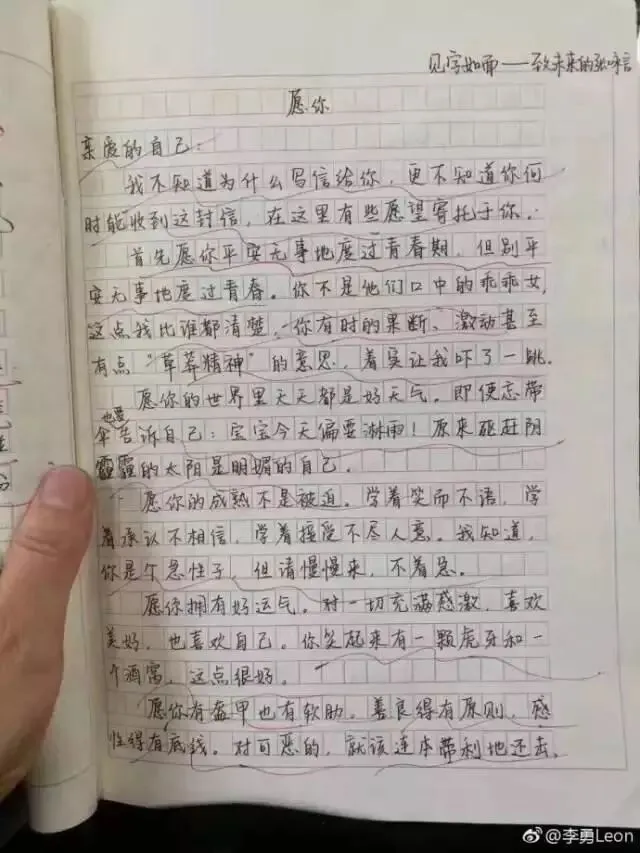 见字如面——致未来的张咪信
愿你
亲爱的自己:
我不知道为什么写信给你,更不知道你何
时能收到这封信,在这里有些愿望寄托于你.
首先愿你平安无事地度过青春期,但别平
安无事地度过青春。你不是他们口中的乖乖女,
这点我比谁都清楚,你有时的果断、激动甚至
有点“草莽精神”的意思,着实让我吓了一跳.
愿你的世界里天天都是好天气。即使忘带
伞也要告诉自己:宝宝今天偏要淋雨!原来驱赶阴
霾的太阳是明媚的自己.
愿你的成熟不是被迫。学着笑而不语,学
着承认不相信,学着接受不尽人意。我知道,
你是个急性子,但请慢慢来,不着急。
愿你拥有好运气。对一切充满感激,喜欢
美好,也喜欢自己。你笑起来有一颗虎牙和一
个酒窝,这点很好。
愿你有盔甲也有软肋。善良得有原则,感
性得有底线。对可恶的,就该连本带利地还去.
@李勇Leon